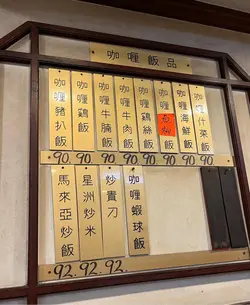 咖喱飯品
咖喱豬扒飯
咖喱鷄飯
咖喱牛腩飯
咖喱牛肉飯
咖喱鷄絲飯
咖喱飯
咖喱海鮮飯
咖喱什菜飯
90. 90. 90. 90. 90. 90. 90. 90
馬來亞炒飯
星洲炒米
炒貴刀
咖喱蝦球飯
92. 92. 92